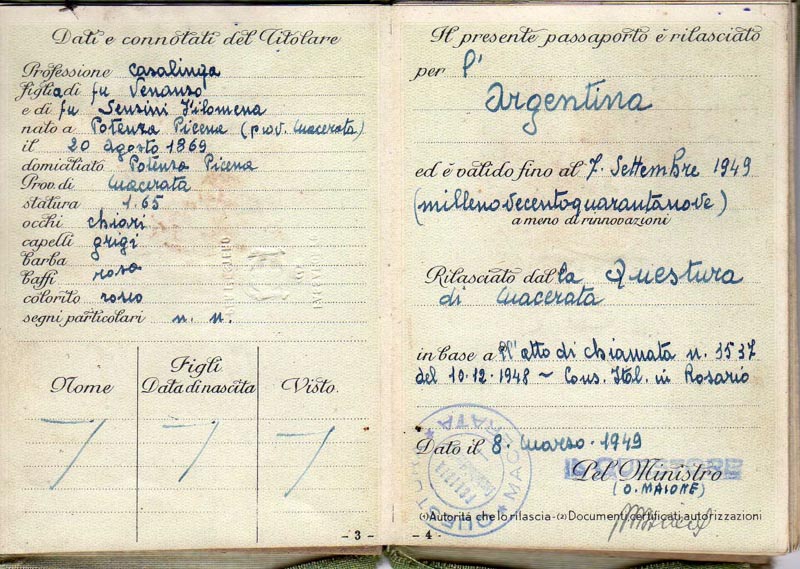 Dati e connotati del Titolare
Professione casalinga
figlia di fu Venanzo
e di fu Sensini Filomena
nato a Potenza Picena (prov. Macerata)
il 20 agosto 1869
domiciliato Potenza Picena
Prov. di Macerata
statura 1.65
occhi chiari
capelli grigi
barba
baffi
colorito roseo
segni particolari n. n.
Figli
Nome Data di nascita Visto.
- 3 -
Il presente passaporto è rilasciato
per l'
Argentina
ed è valido fino al 7. Settembre 1949
(millenovecentoquarantanove)
a meno di rinnovazioni
Rilasciato dalla Questura
di Macerata
in base a ll'atto di chiamata n. 1537
del 10.12.1948 ~ Cons. Ital. in Rosario
Dato il 8. Marzo. 1949
IL QUESTORE
Pel Ministro
(O. MAIONE)
QUESTURA MACERATA
(1) Autorità che lo rilascia - (2) Documenti, certificati, autorizzazioni
- 4 -